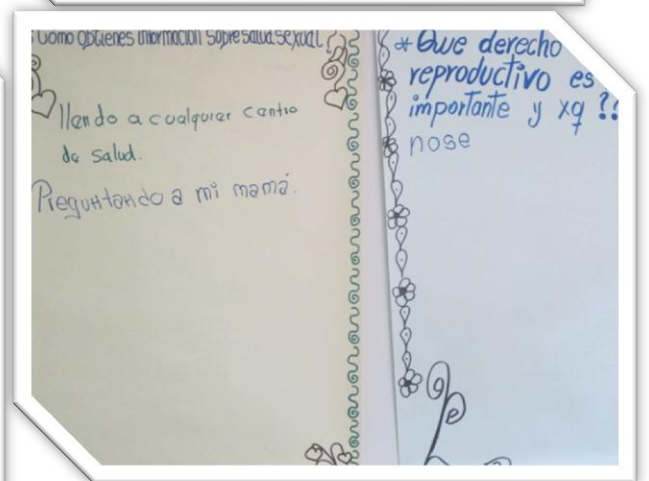 Como obtienes información sobre salud sexual
llendo a cualquier centro
de salud.
Preguntando a mi mamá.
* Que derecho
reproductivo es
importante y xq ??
nose